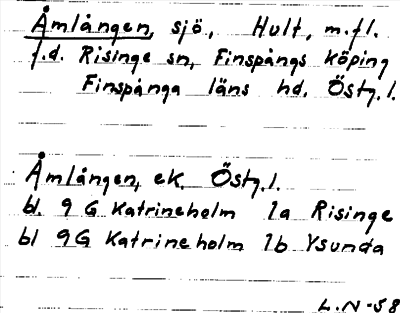 Åmlången, sjö, Hult, m.fl.
f.d. Risinge sn, Finspångs köping
Finspånga läns hd. Östg.l.
Åmlången, ek. Östg.l.
bl. 9 G Katrineholm 1a Risinge
bl 9G Katrineholm 1b Ysunda
L.N-58